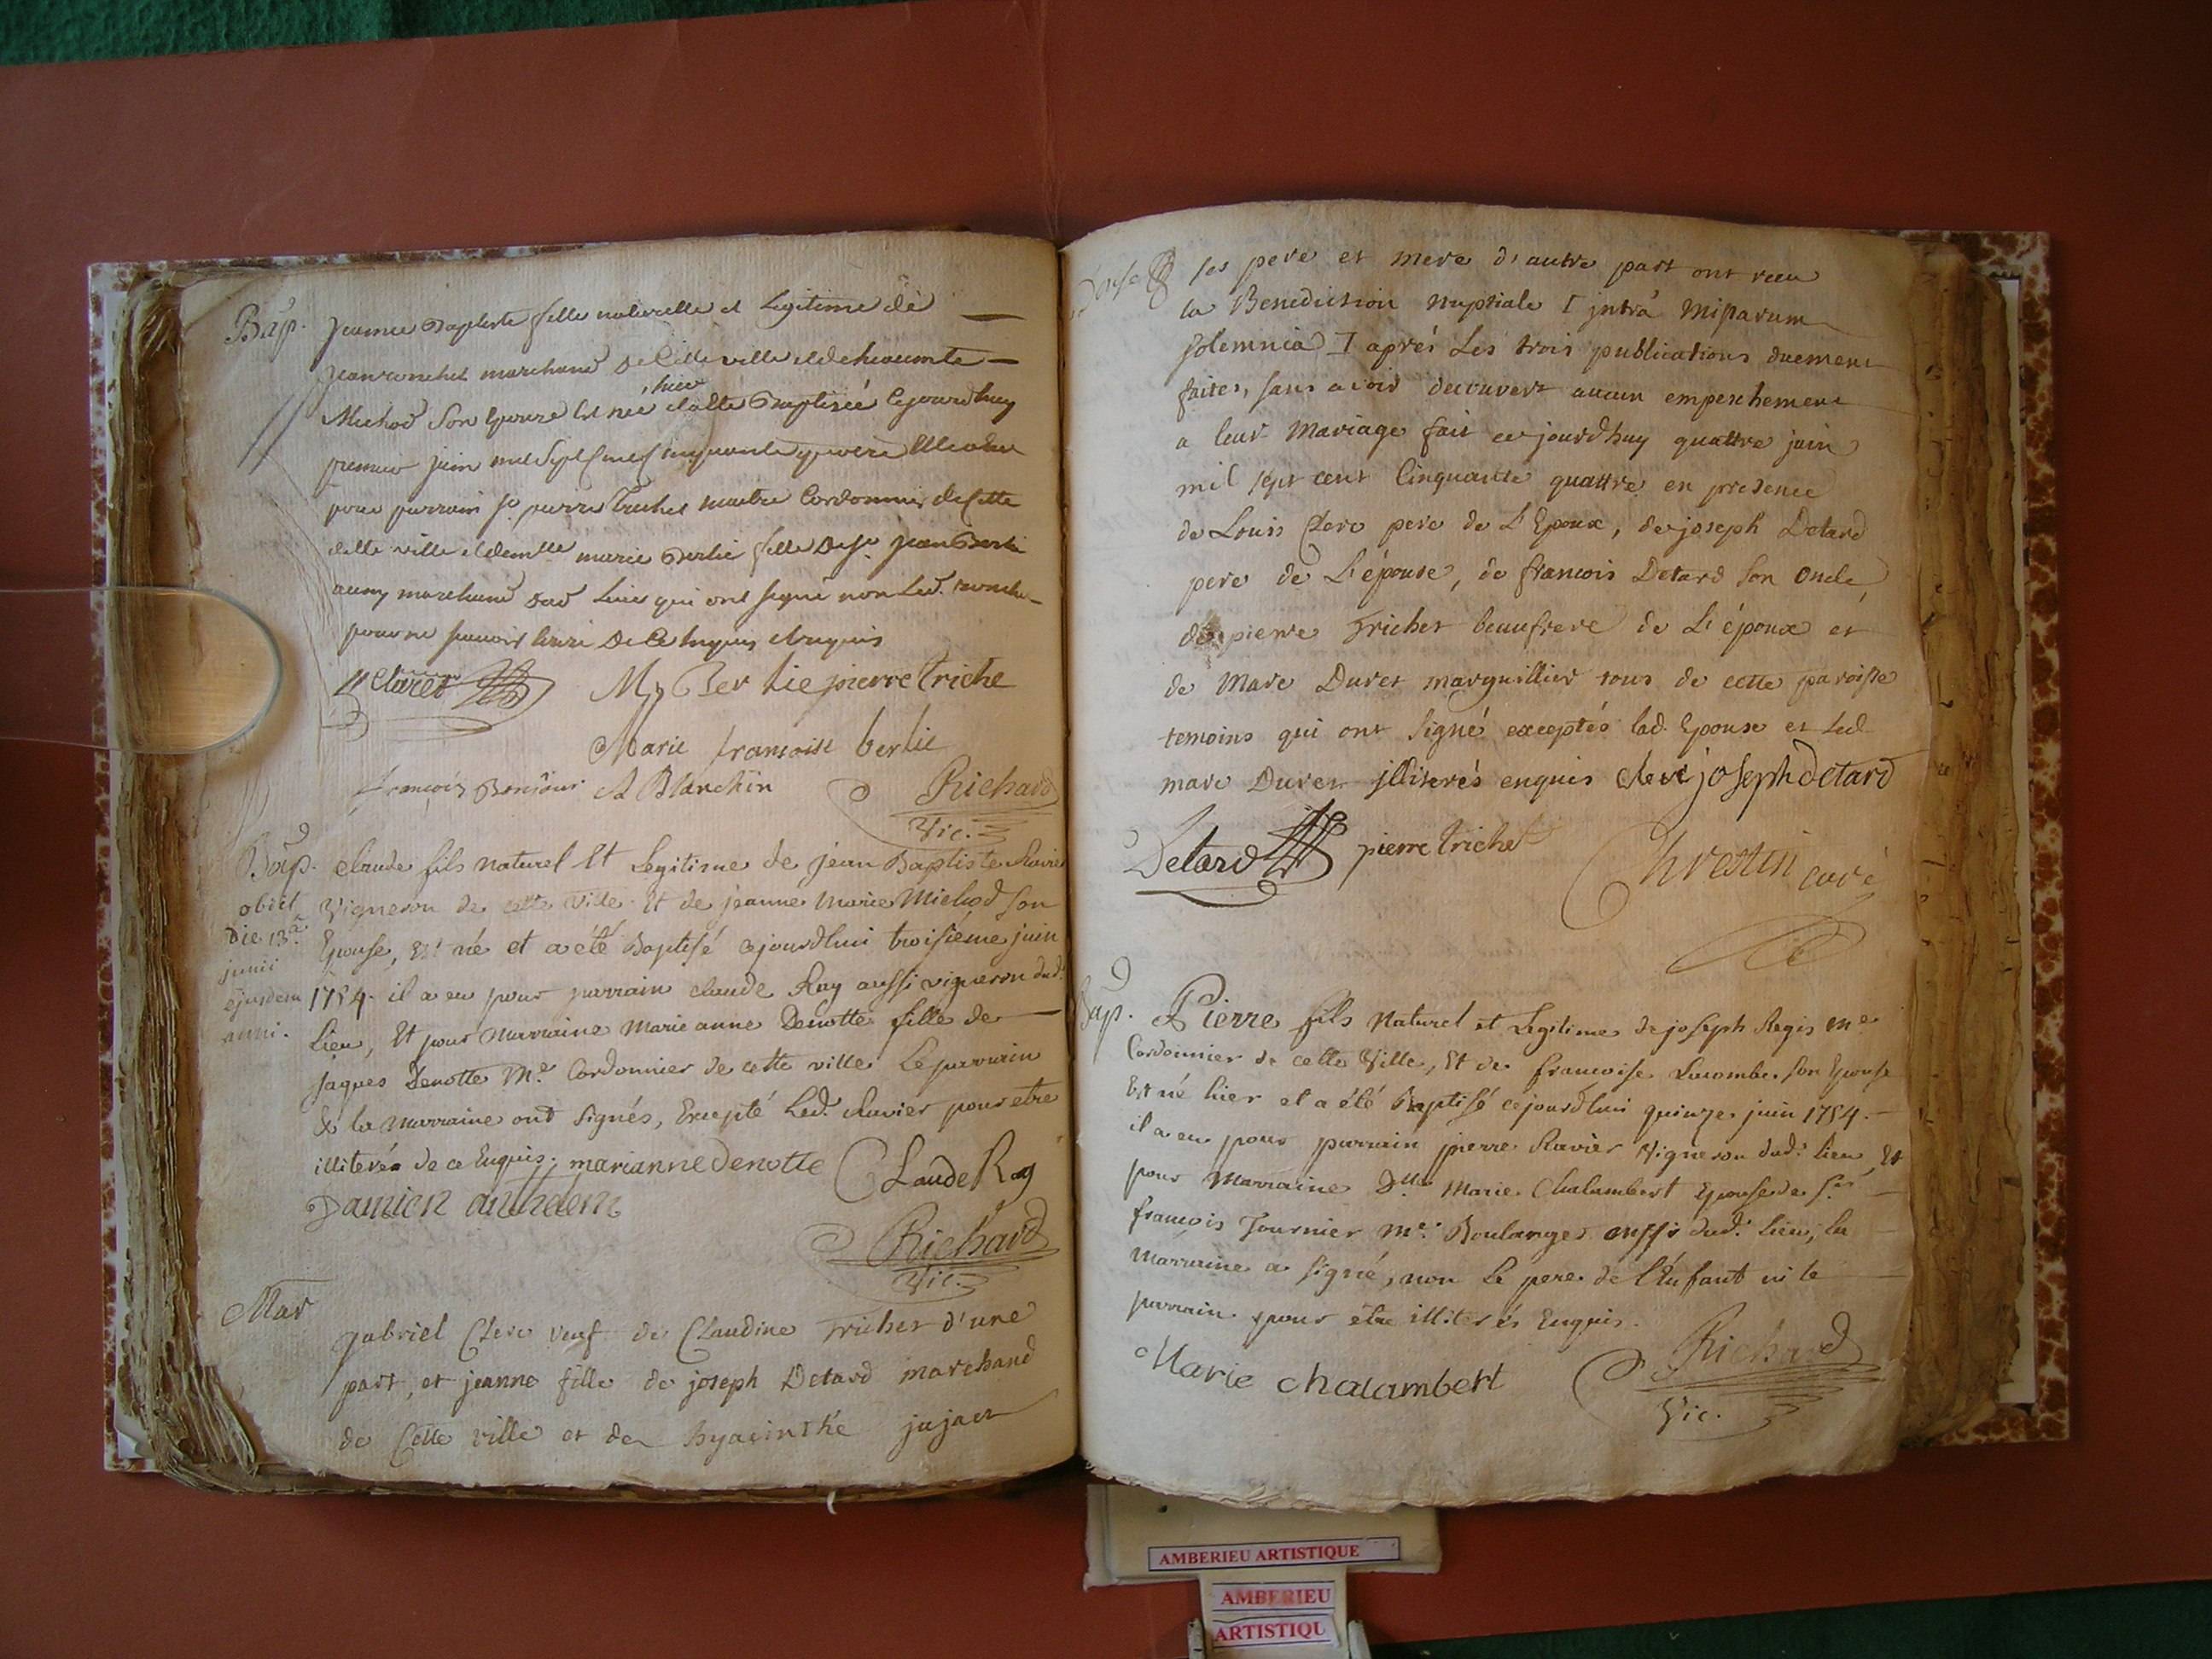 Bap. Jeanne Baptiste fille naturelle et Legitime de
marchand de cette ville et de
Michod Son Epouse Est née hier et a été Baptisée cejourdhuy
premier juin mil Sept Cent cinquante
pour parrain Sr. pierre Trichet maitre Cordonnier de Cette
ville et demlle marie Berlie fille de Sr. Jean Berlie
aussy marchand dud Lieu qui ont signé non Led.
pour ne Scavoir Ecrire De Ce Enquis
Claret M Berlie pierre triche
Marie francoise berlie
françois Bonjour A Blanchin Richard
Vic.
Bap. Claude fils Naturel Et Legitime de jean Baptiste Ravier
obiit Vigneron de cette Ville Et de jeanne Marie Michod Son
Die 13a. Epouse, Est né et a été Baptisé cejourdhui troisiéme juin
junii
ejusdem 1754. il a eu pour parrain claude Ray aussi vigneron dud.
anni. Lieu, Et pour Marraine Marie anne Denotte fille de
Jaques Denotte Me. Cordonnier de cette ville Le parrain
& la Marraine ont Signés, Excepté Led. Ravier pour etre
illiterés de ce Enquis. marianne denotte Claude Ray
Damien anthelem
Richard
Vic.
Mar
gabriel Clerc veuf de Claudine Trichet d'une
part, et jeanne fille de joseph Detard marchand
de Cette ville et de hyacinthe jujat
ses pere et mere d'autre part ont receu
la Benediction nuptiale [ intrà Missarum
solemnia ] aprés Les trois publications duement
faites, sans avoir decouvert aucun empeschement
a leur Mariage fait cejourdhuy quattre juin
mil sept cent Cinquante quattre en presence
de Louis Clerc pere de L'Epoux, de joseph Detard
pere de L'épouse, de francois Detard son oncle,
de pierre Trichet beaufrere de L'époux et
de Marc Duret marguillier tous de cette paroisse
temoins qui ont signé exceptés lad. Epouse et Led
marc Duret illiterés enquis Clerc joseph detard
Detard pierre trichet Chrestin curé
Bap. Pierre fils Naturel et Legitime de joseph Regis me.
Cordonnier de cette Ville, Et de francoise Lacombe son Epouse
Est né hier et a été Baptisé cejourdhui quinze juin 1754.
il a eu pour parrain pierre Ravier Vigneron dud. lieu, Et
pour Marraine Dlle Marie Chalambert Epouse de Sr.
françois Tournier Me. Boulanger aussi dud. Lieu, La
Marraine a signé, non Le pere de l'Enfant ni le
parrain pour être illiterés Enquis.
Marie chalambert Richard
Vic.
AMBERIEU ARTISTIQUE
AMBERIEU
ARTISTIQU